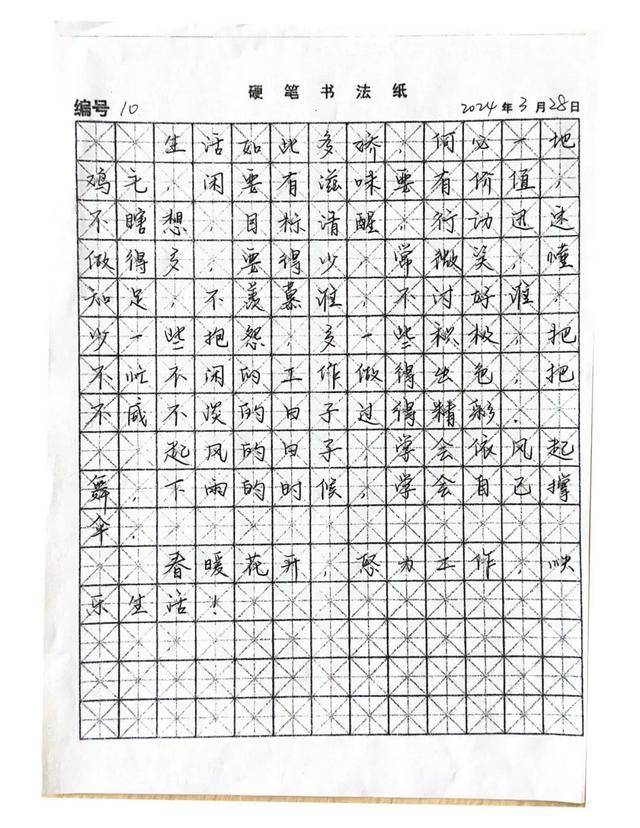 硬笔书法纸
编号 10 2024年3月28日
生活如此多娇，何必一地
鸡毛，闲要有滋味要有价值，
不瞎想，目标清醒，行动迅速
做得多，要得少，常微笑，懂
知足，不羡慕谁，不讨好谁，
少一些抱怨，多一些积极，把
不忙不闲的工作做得出色，把
不咸不淡的日子过得精彩.
起风的日子，学会依风起
舞，下雨的时候，学会自己撑
伞.
春暖花开，努力工作，快
乐生活！